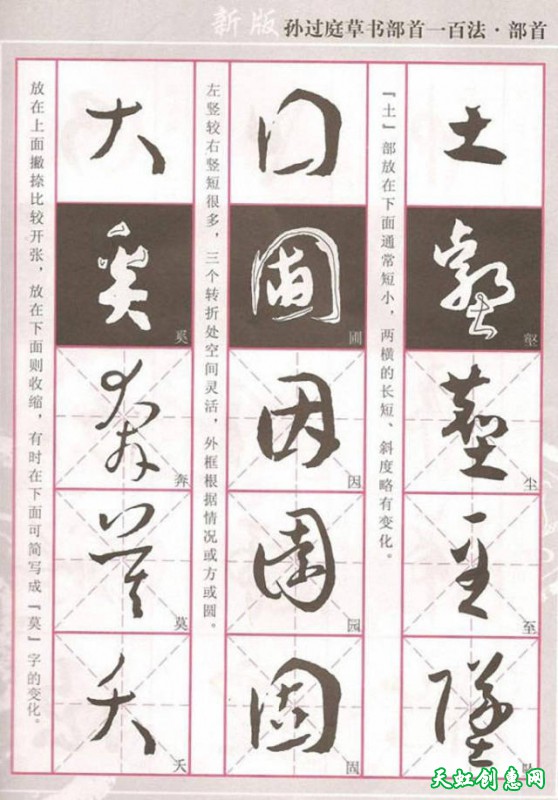 新版 孙过庭草书部首一百法·部首
『土』部放在下面通常短小，两横的长短、斜度略有变化。
土
壑
尘
至
坠
左竖较右竖短很多，三个转折处空间灵活，外框根据情况或方或圆。
囗
圃
因
园
固
放在上面撇捺比较开张，放在下面则收缩，有时在下面可简写成『莫』字的变化。
大
奚
奔
莫
天虹创意网